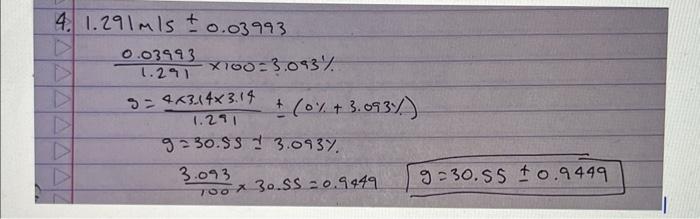 4. 1.291m/s ± 0.03993
0.03993
/1.291 ×100=3.093%
g= 4×3.14×3.14/1.291 ± (0% + 3.093%)
g=30.55 ± 3.093%.
3.093/100 × 30.55 = 0.9449
g=30.55 ± 0.9449